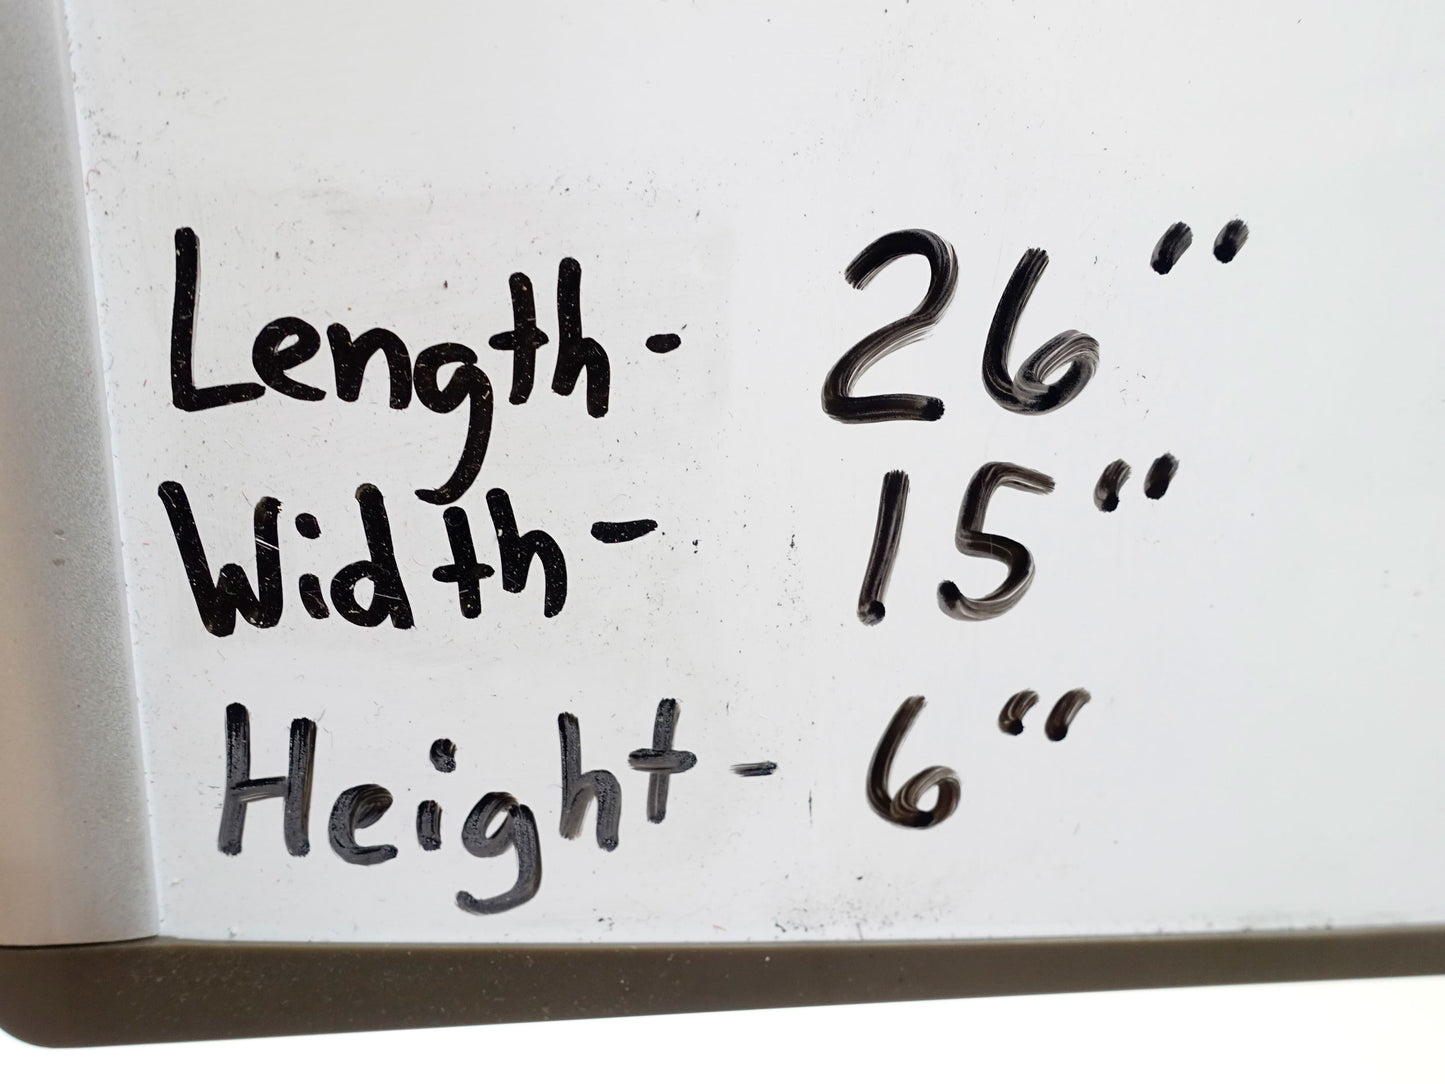 Length- 26"
Width- 15"
Height- 6"